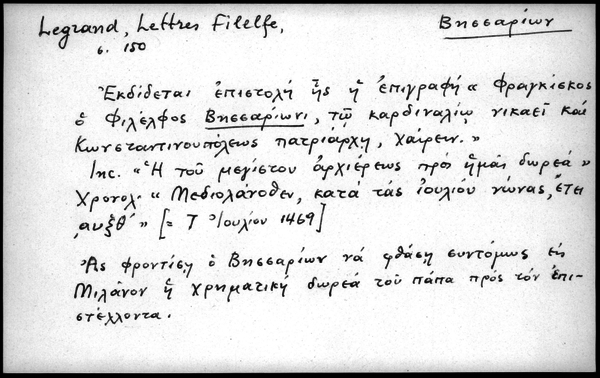 Legrand, Lettres Filelfe,
Βησσαρίων
σ. 150
Ἐκδίδεται ἐπιστολή ἧς ἡ ἐπιγραφή « Φραγκίσκος
ὁ Φιλέλφος Βησσαρίωνι, τῷ καρδιναλίῳ νικαεῖ καί
Κωνσταντινουπόλεως πατριάρχῃ, χαίρειν. »
Inc. « Ἡ τοῦ μεγίστου ἀρχιέρεως πρός ἡμᾶς δωρεά »
Χρονολ. « Μεδιολάνοθεν, κατά τάς ἰουλίου νώνας, ἔτει
͵αυξθʹ » [= 7 Ἰουλίου 1469]
Ἄς φροντίσῃ ὁ Βησσαρίων νά φθάσῃ συντόμως εἰς
Μιλάνον ἡ χρηματική δωρεά τοῦ πάπα πρός τόν ἐπι-
στέλλοντα.